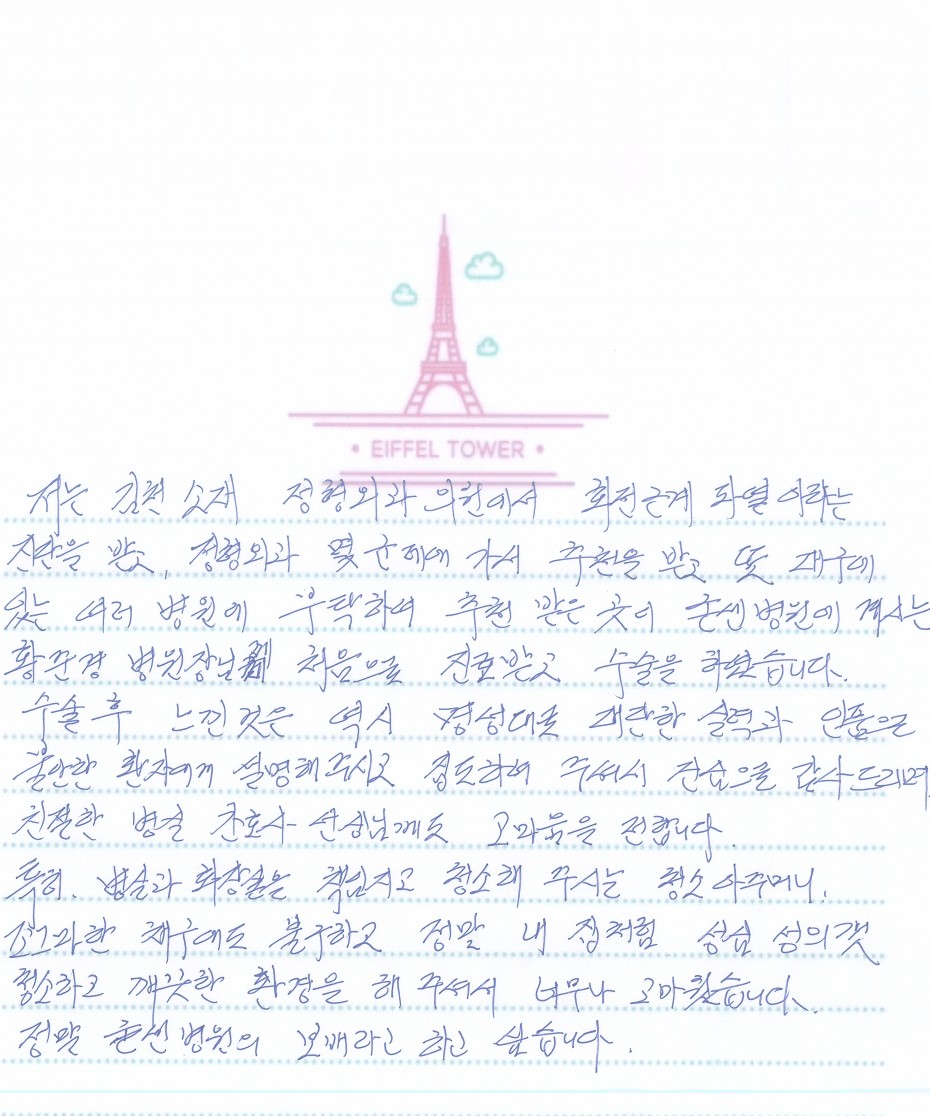 EIFFEL TOWER
저는 김천 소재 정형외과 의원에서 회전근개 파열이라는
진단을 받고, 정형외과 몇 군데에 가서 추천을 받고 또 대구에
있는 여러 병원에 부탁하여 추천 받은 곳이 굳센병원에 계시는
황준경 병원장님 처음으로 진료받고 수술을 하였습니다.
수술 후 느낀 것은 역시 명성대로 대단한 실력과 인품으로
불안한 환자에게 설명해주시고 집도하여 주셔서 진심으로 감사드리며,
친절한 병실 간호사 선생님께도 고마움을 전합니다.
특히. 병실과 화장실을 책임지고 청소해 주시는 청소 아주머니.
조그마한 체구에도 불구하고 정말 내 집처럼 성심 성의껏
청소하고 깨끗한 환경을 해 주셔서 너무나 고마웠습니다.
정말 굳센병원의 보배라고 하고 싶습니다.